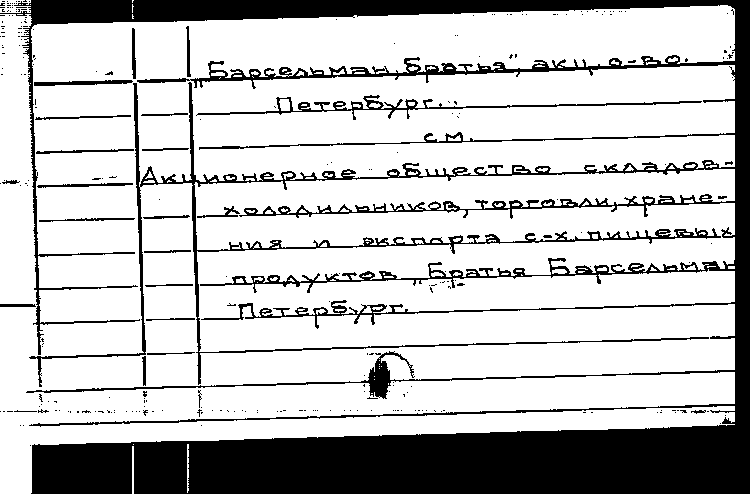 „Барсельман, братья", акц. о-во.
Петербург.
см.
Акционерное общество складов-
холодильников, торговли, хране-
ния и экспорта с.-х. пищевых
продуктов „Братья Барсельман
Петербург.